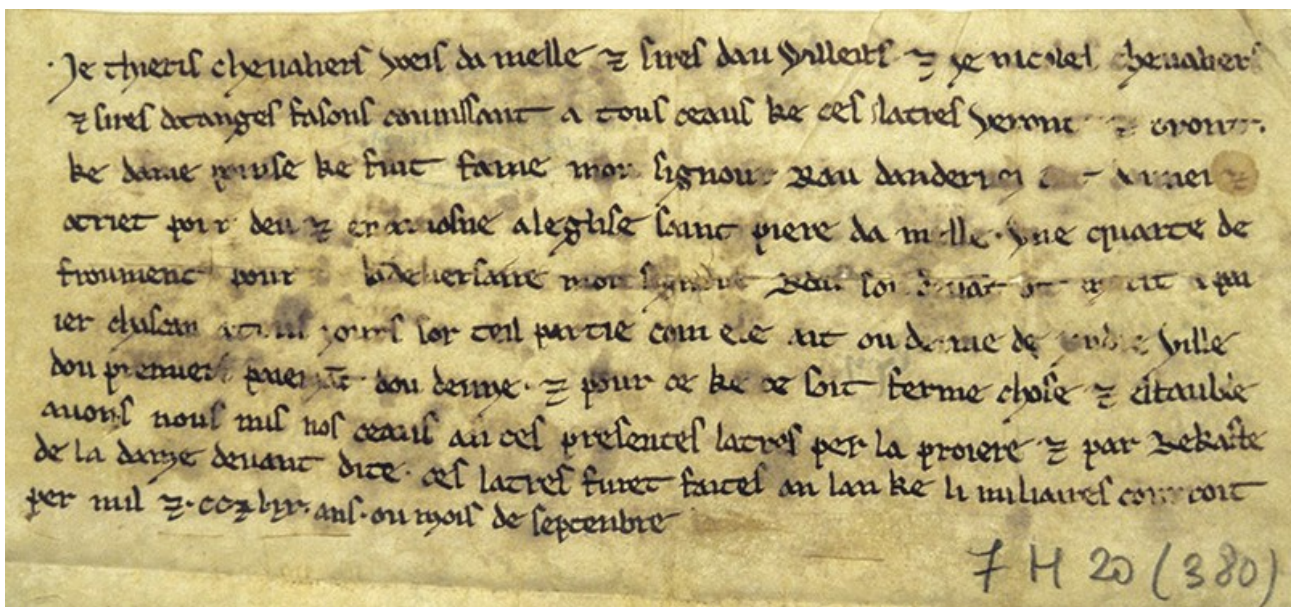 Je thieris chevaliers voeis da melle ⁊ sires dau villeirs ⁊ ge nicoles chevaliers
⁊ sires dotanges fasons counissant a tous ceaus ke ces latres veront ⁊ oront
ke dame ke fuit fame mon signour Rau
otriet pour deu ⁊ en amosne a leglise saint piere da melle · une quarte de
froument pour mon signour Rau pai
ier chascan jours sor teil partie com ele ait ou deme de ville
dou premier paiemāt dou deme · ⁊ pour ce ke ce soit ferme chose ⁊ estauble
avons nous mis nos ceaus an ces presentes latres per la proiere ⁊ par Rekaste
de la dame devant dite · ces latres furēt faites an lan ke li miliaires corroit
per mil ⁊ · cc ⁊ lxx · ans · ou mois de septenbre
7 H 20 (380)